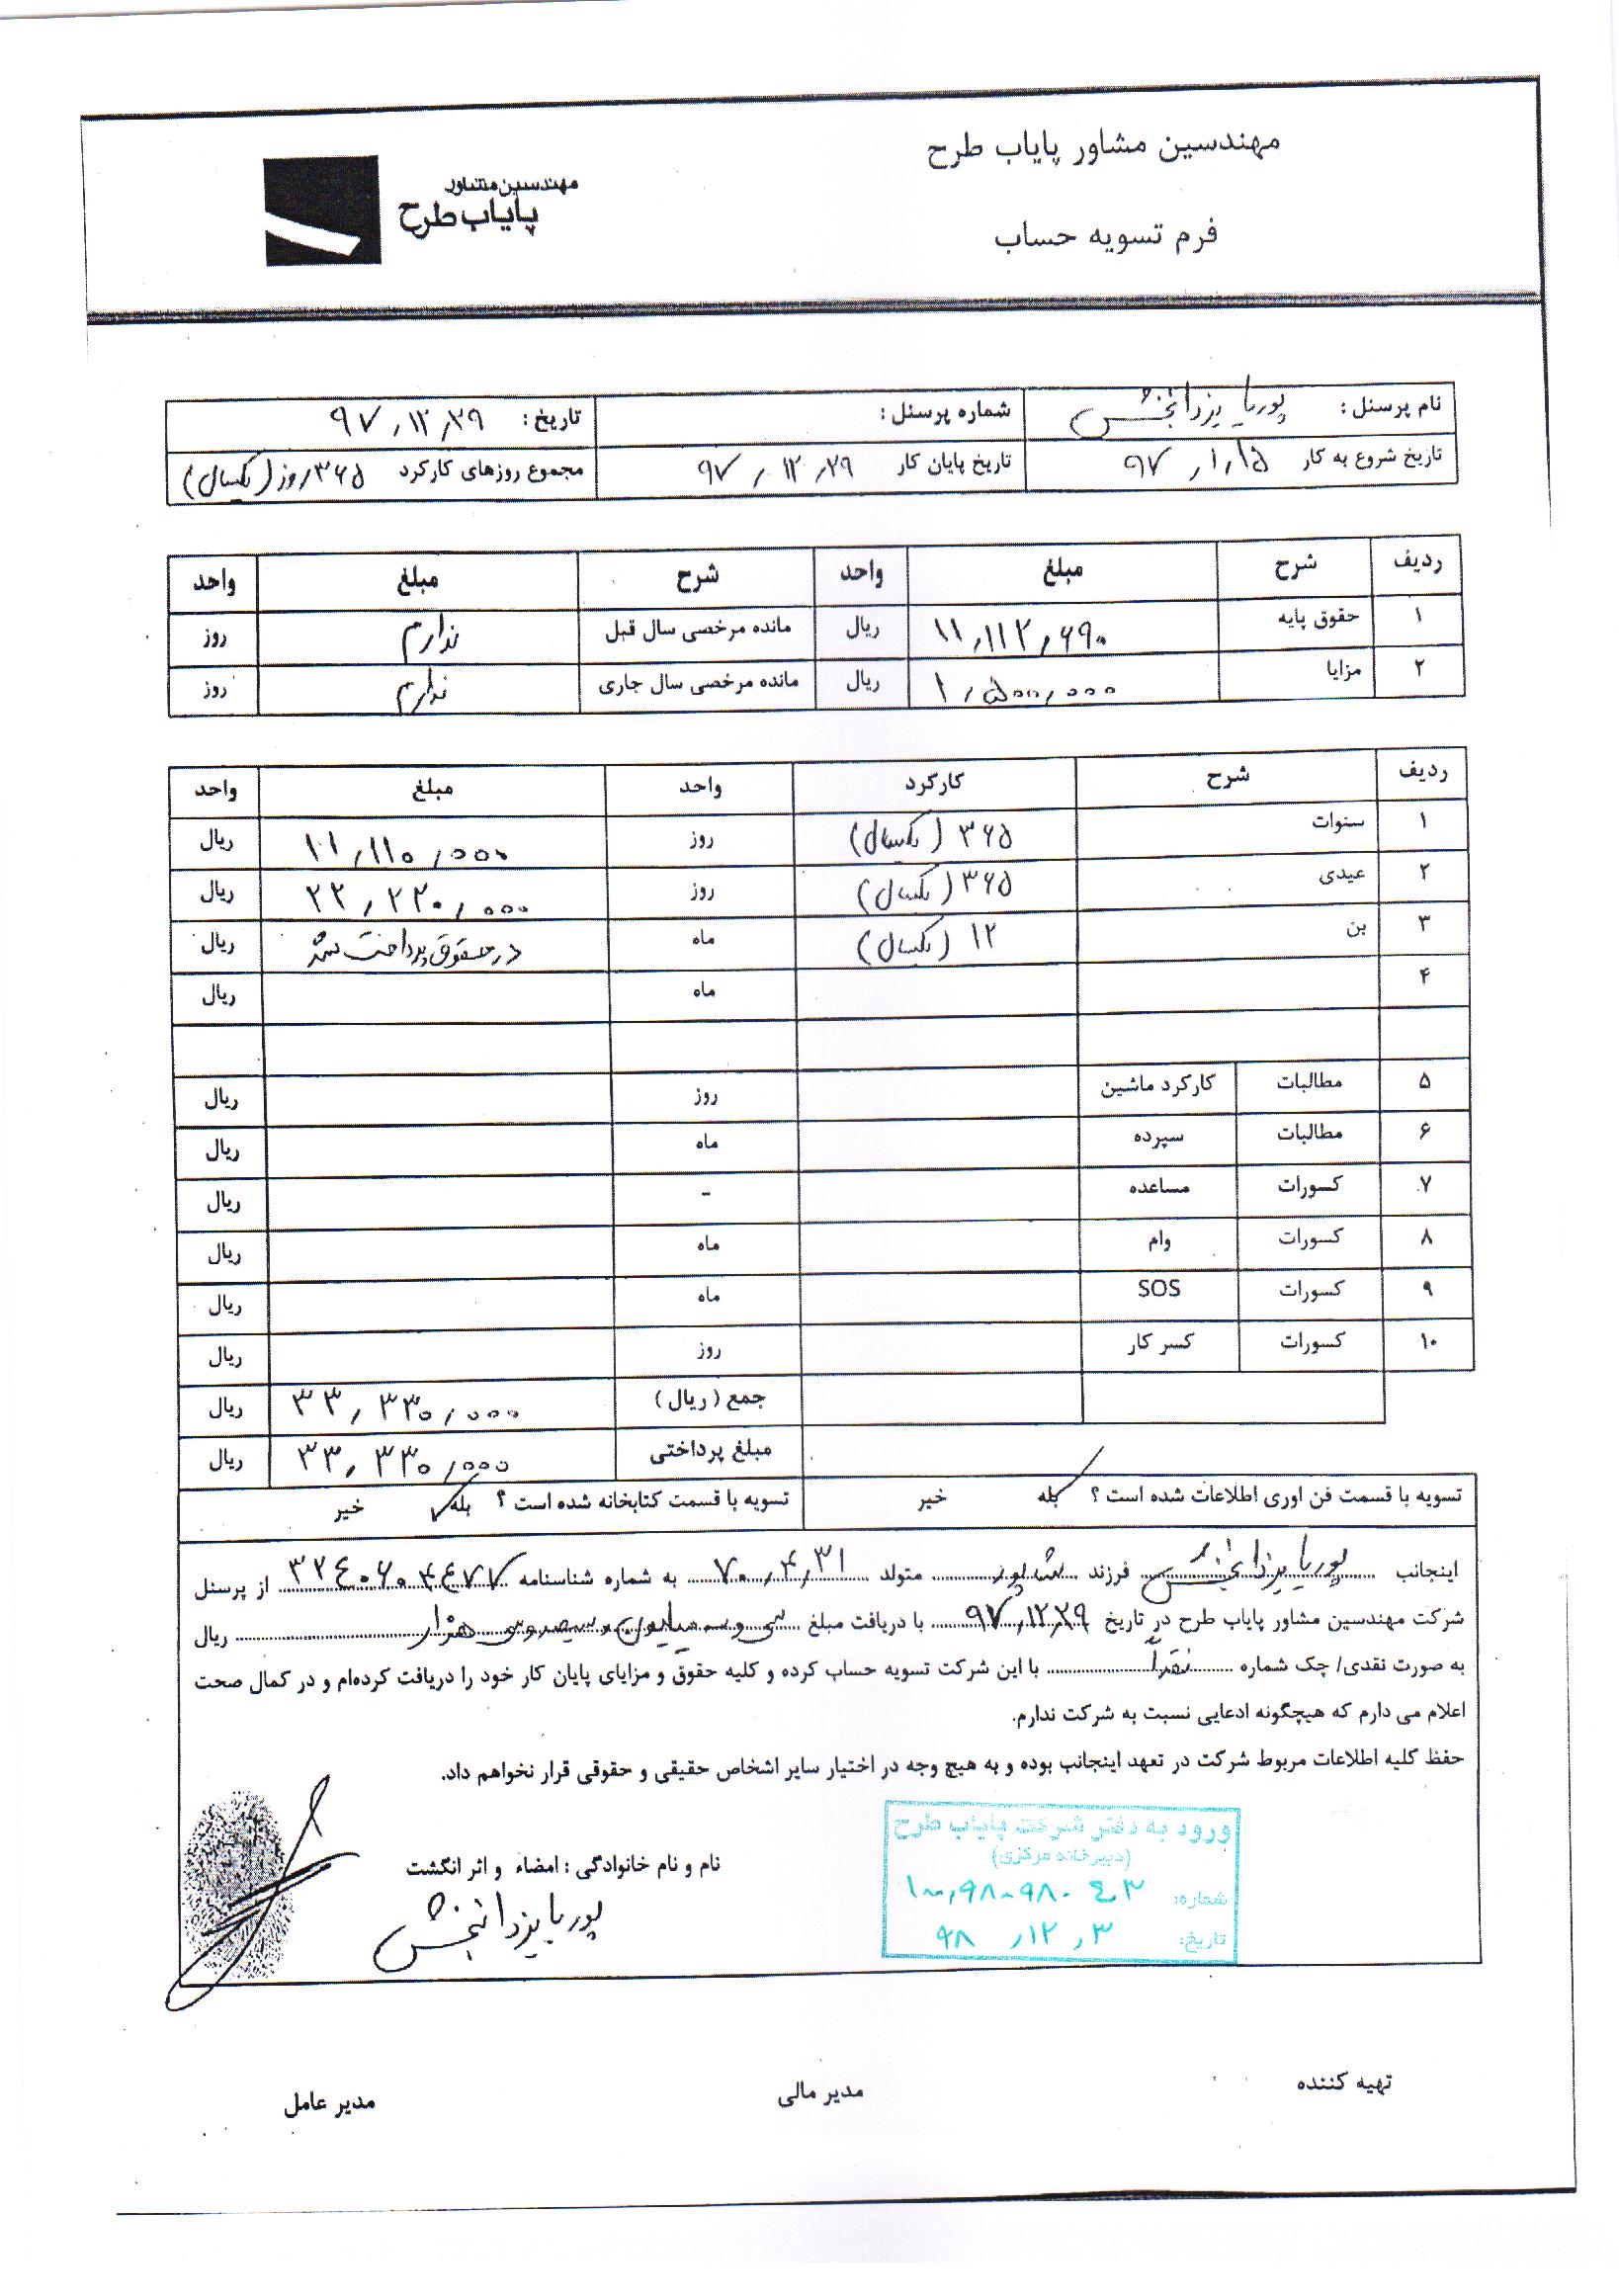 مهندسین مشاور پایاب طرح
مهندسین مشاور
پایاب طرح
فرم تسویه حساب
نام پرسنل : پوریا یزدانبخش شماره پرسنل : تاریخ : ۹۷,۱۲,۲۹
تاریخ شروع به کار ۹۷,۱,۱۵ تاریخ پایان کار ۹۷,۱۲,۲۹ مجموع روزهای کارکرد ۳۶۵ روز (یکسال)
ردیف شرح مبلغ واحد شرح مبلغ واحد
۱ حقوق پایه ۱۱,۱۱۲,۶۹۰ ریال مانده مرخصی سال قبل ندارم روز
۲ مزایا ۱,۵۰۰,۰۰۰ ریال مانده مرخصی سال جاری ندارم روز
ردیف شرح کارکرد واحد مبلغ واحد
۱ سنوات ۳۶۵ (یکسال) روز ۱۱,۱۱۰,۰۰۰ ریال
۲ عیدی ۳۶۵ (یکسال) روز ۲۲,۲۲۰,۰۰۰ ریال
۳ بن ۱۲ (یکسال) ماه در حقوق پرداخت شد ریال
۴ ماه ریال
۵ مطالبات کارکرد ماشین روز ریال
۶ مطالبات سپرده ماه ریال
۷ کسورات مساعده - ریال
۸ کسورات وام ماه ریال
۹ کسورات SOS ماه ریال
۱۰ کسورات کسر کار روز ریال
جمع (ریال) ۳۳,۳۳۰,۰۰۰ ریال
مبلغ پرداختی ۳۳,۳۳۰,۰۰۰ ریال
تسویه با قسمت فن اوری اطلاعات شده است ؟ بله خیر تسویه با قسمت کتابخانه شده است ؟ بله خیر
اینجانب پوریا یزدانبخش فرزند شاپور متولد ۷۰,۴,۳۱ به شماره شناسنامه ۳۲۴۰۶۰۴۴۷۷ از پرسنل
شرکت مهندسین مشاور پایاب طرح در تاریخ ۹۷,۱۲,۲۹ با دریافت مبلغ سی و سه میلیون و سیصدوسی هزار ریال
به صورت نقدی/ چک شماره نقداً با این شرکت تسویه حساب کرده و کلیه حقوق و مزایای پایان کار خود را دریافت کرده‌ام و در کمال صحت
اعلام می دارم که هیچگونه ادعایی نسبت به شرکت ندارم.
حفظ کلیه اطلاعات مربوط شرکت در تعهد اینجانب بوده و به هیچ وجه در اختیار سایر اشخاص حقیقی و حقوقی قرار نخواهم داد.
ورود به دفتر شرکت پایاب طرح
(دبیرخانه مرکزی)
شماره:
تاریخ: ۹۸,۱۲,۳
نام و نام خانوادگی : امضاء و اثر انگشت
پوریا یزدانبخش
تهیه کننده مدیر مالی مدیر عامل